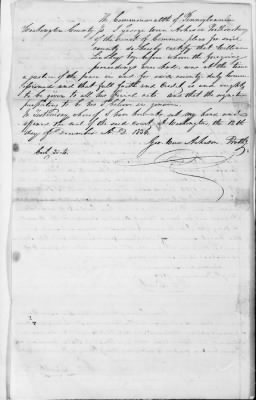 The Commonwealth of Pennsylvania
Washington County ss I George Acheson Prothonotary
of the court of Common pleas for said
county do hereby certify that William
Esqr before whom the foregoing
proceedings was had, was at the time
a Justice of the peace in and for said county duly commis
sioned and that full faith and credit is and ought
to be given to all his official acts and that the signature
purporting to be his I believe is genuine.
In testimony whereof I have hereunto set my hand and
affixed the seal of the said court at Washington the 12th
day of December A. D. 1836.
Geo. Acheson Proth